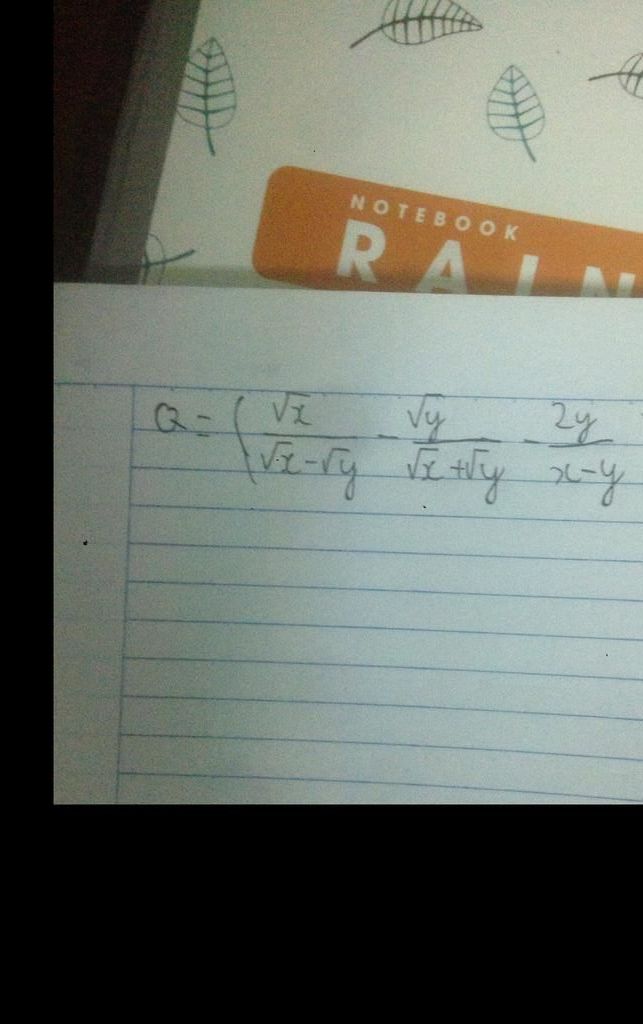 NOTEBOOK
RAIN
Q = ( √x / (√x - √y) - √y / (√x + √y) - 2y / (x - y)